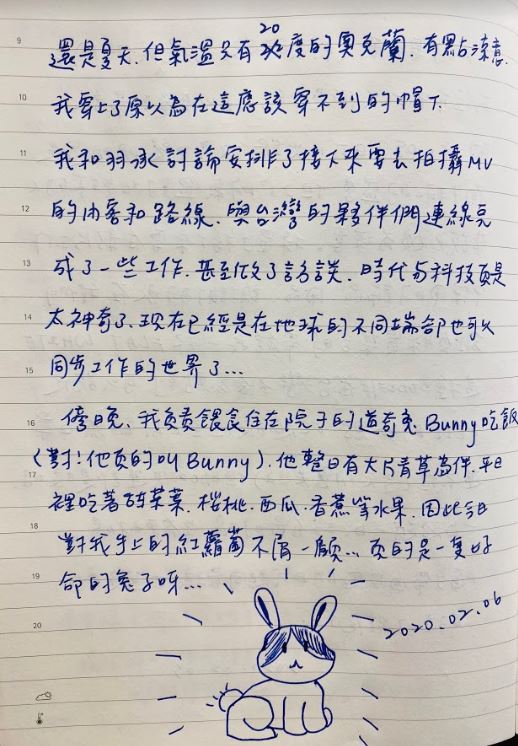 9
還是夏天.但氣溫只有20度的奧克蘭.有點涼意.
10
我穿上了原以為在這應該穿不到的帽T.
11
我和羽承討論安排了接下來要去拍攝MV
12
的內容和路線.與台灣的夥伴們連線完
13
成了一些工作.甚至做了訪談.時代与科技真是
14
太神奇了.現在已經是在地球的不同端都也可以
15
同步工作的世界了...
16
傍晚、我負責餵食住在院子的道奇兔Bunny吃飯
17
(對!他真的叫Bunny).他整日有大片青草為伴.平日
裡吃著甜菜葉.桜桃.西瓜.香蕉等水果.因此今日
18
對我手上的紅蘿蔔不屑一顧... 真的是一隻好
19
命的兔子呀...
20
2020.02.06